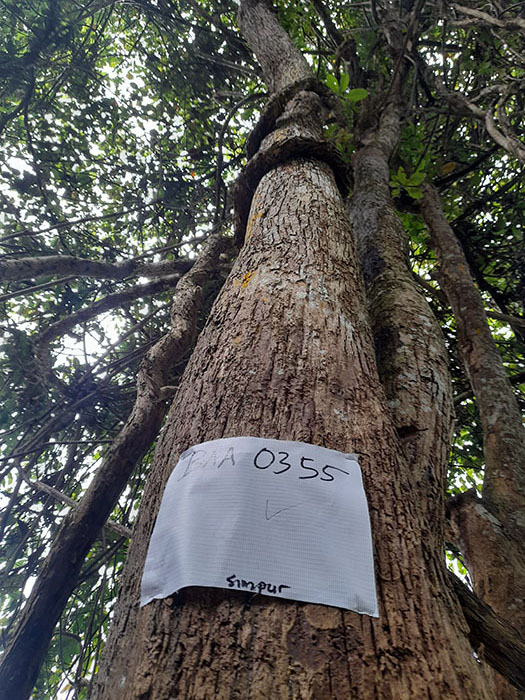 BAA 0355
simpur